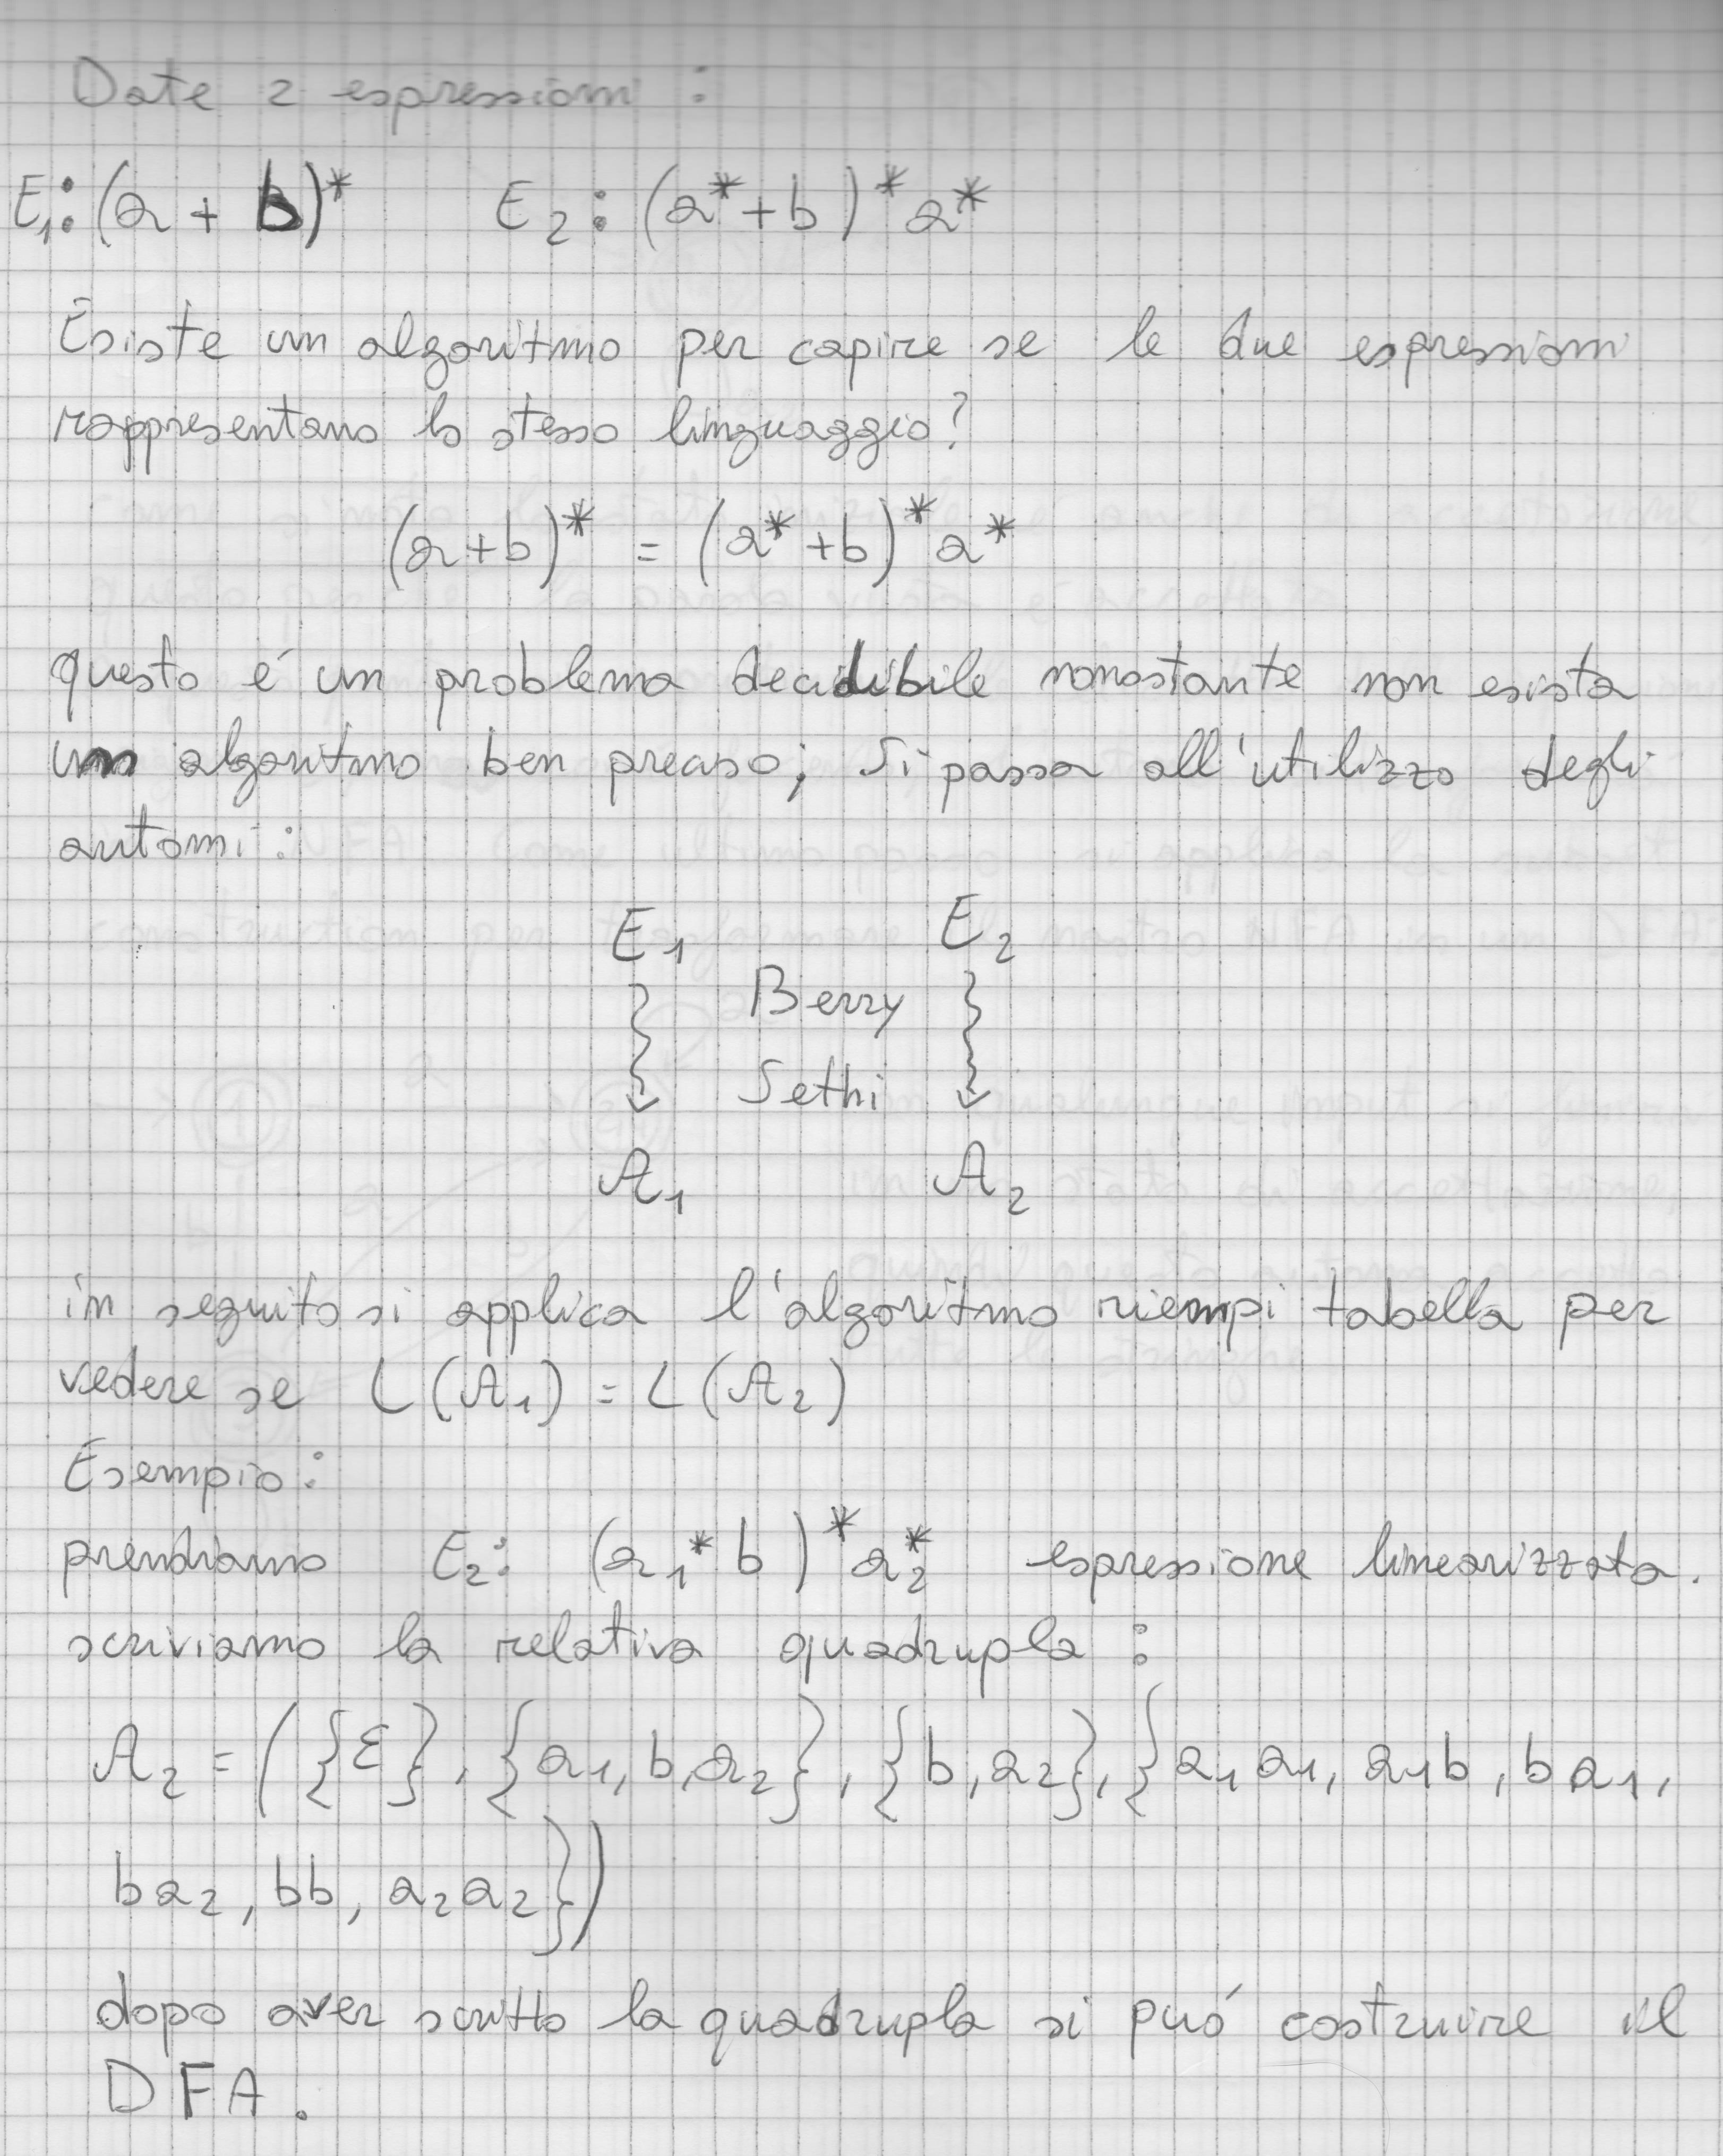 Date 2 espressioni :
E₁: (a + b)* E₂ : (a* + b)* a*
Esiste un algoritmo per capire se le due espressioni
rappresentano lo stesso linguaggio?
(a+b)* = (a* +b)* a*
questo é un problema decidibile nonostante non esista
un algoritmo ben preciso; Si passa all'utilizzo degli
automi :
E₁ E₂
Berry
Sethi
A₁ A₂
in seguito si applica l'algoritmo riempi tabella per
vedere se L(A₁) = L(A₂)
Esempio :
prendiamo E₂: (a₁* b)* a₂* espressione linearizzata.
scriviamo la relativa quadrupla :
A₂ = ( {ε}, {a₁, b, a₂}, {b, a₂}, {a₁a₁, a₁b, ba₁,
ba₂, bb, a₂a₂})
dopo aver scritto la quadrupla si puó costruire il
DFA.